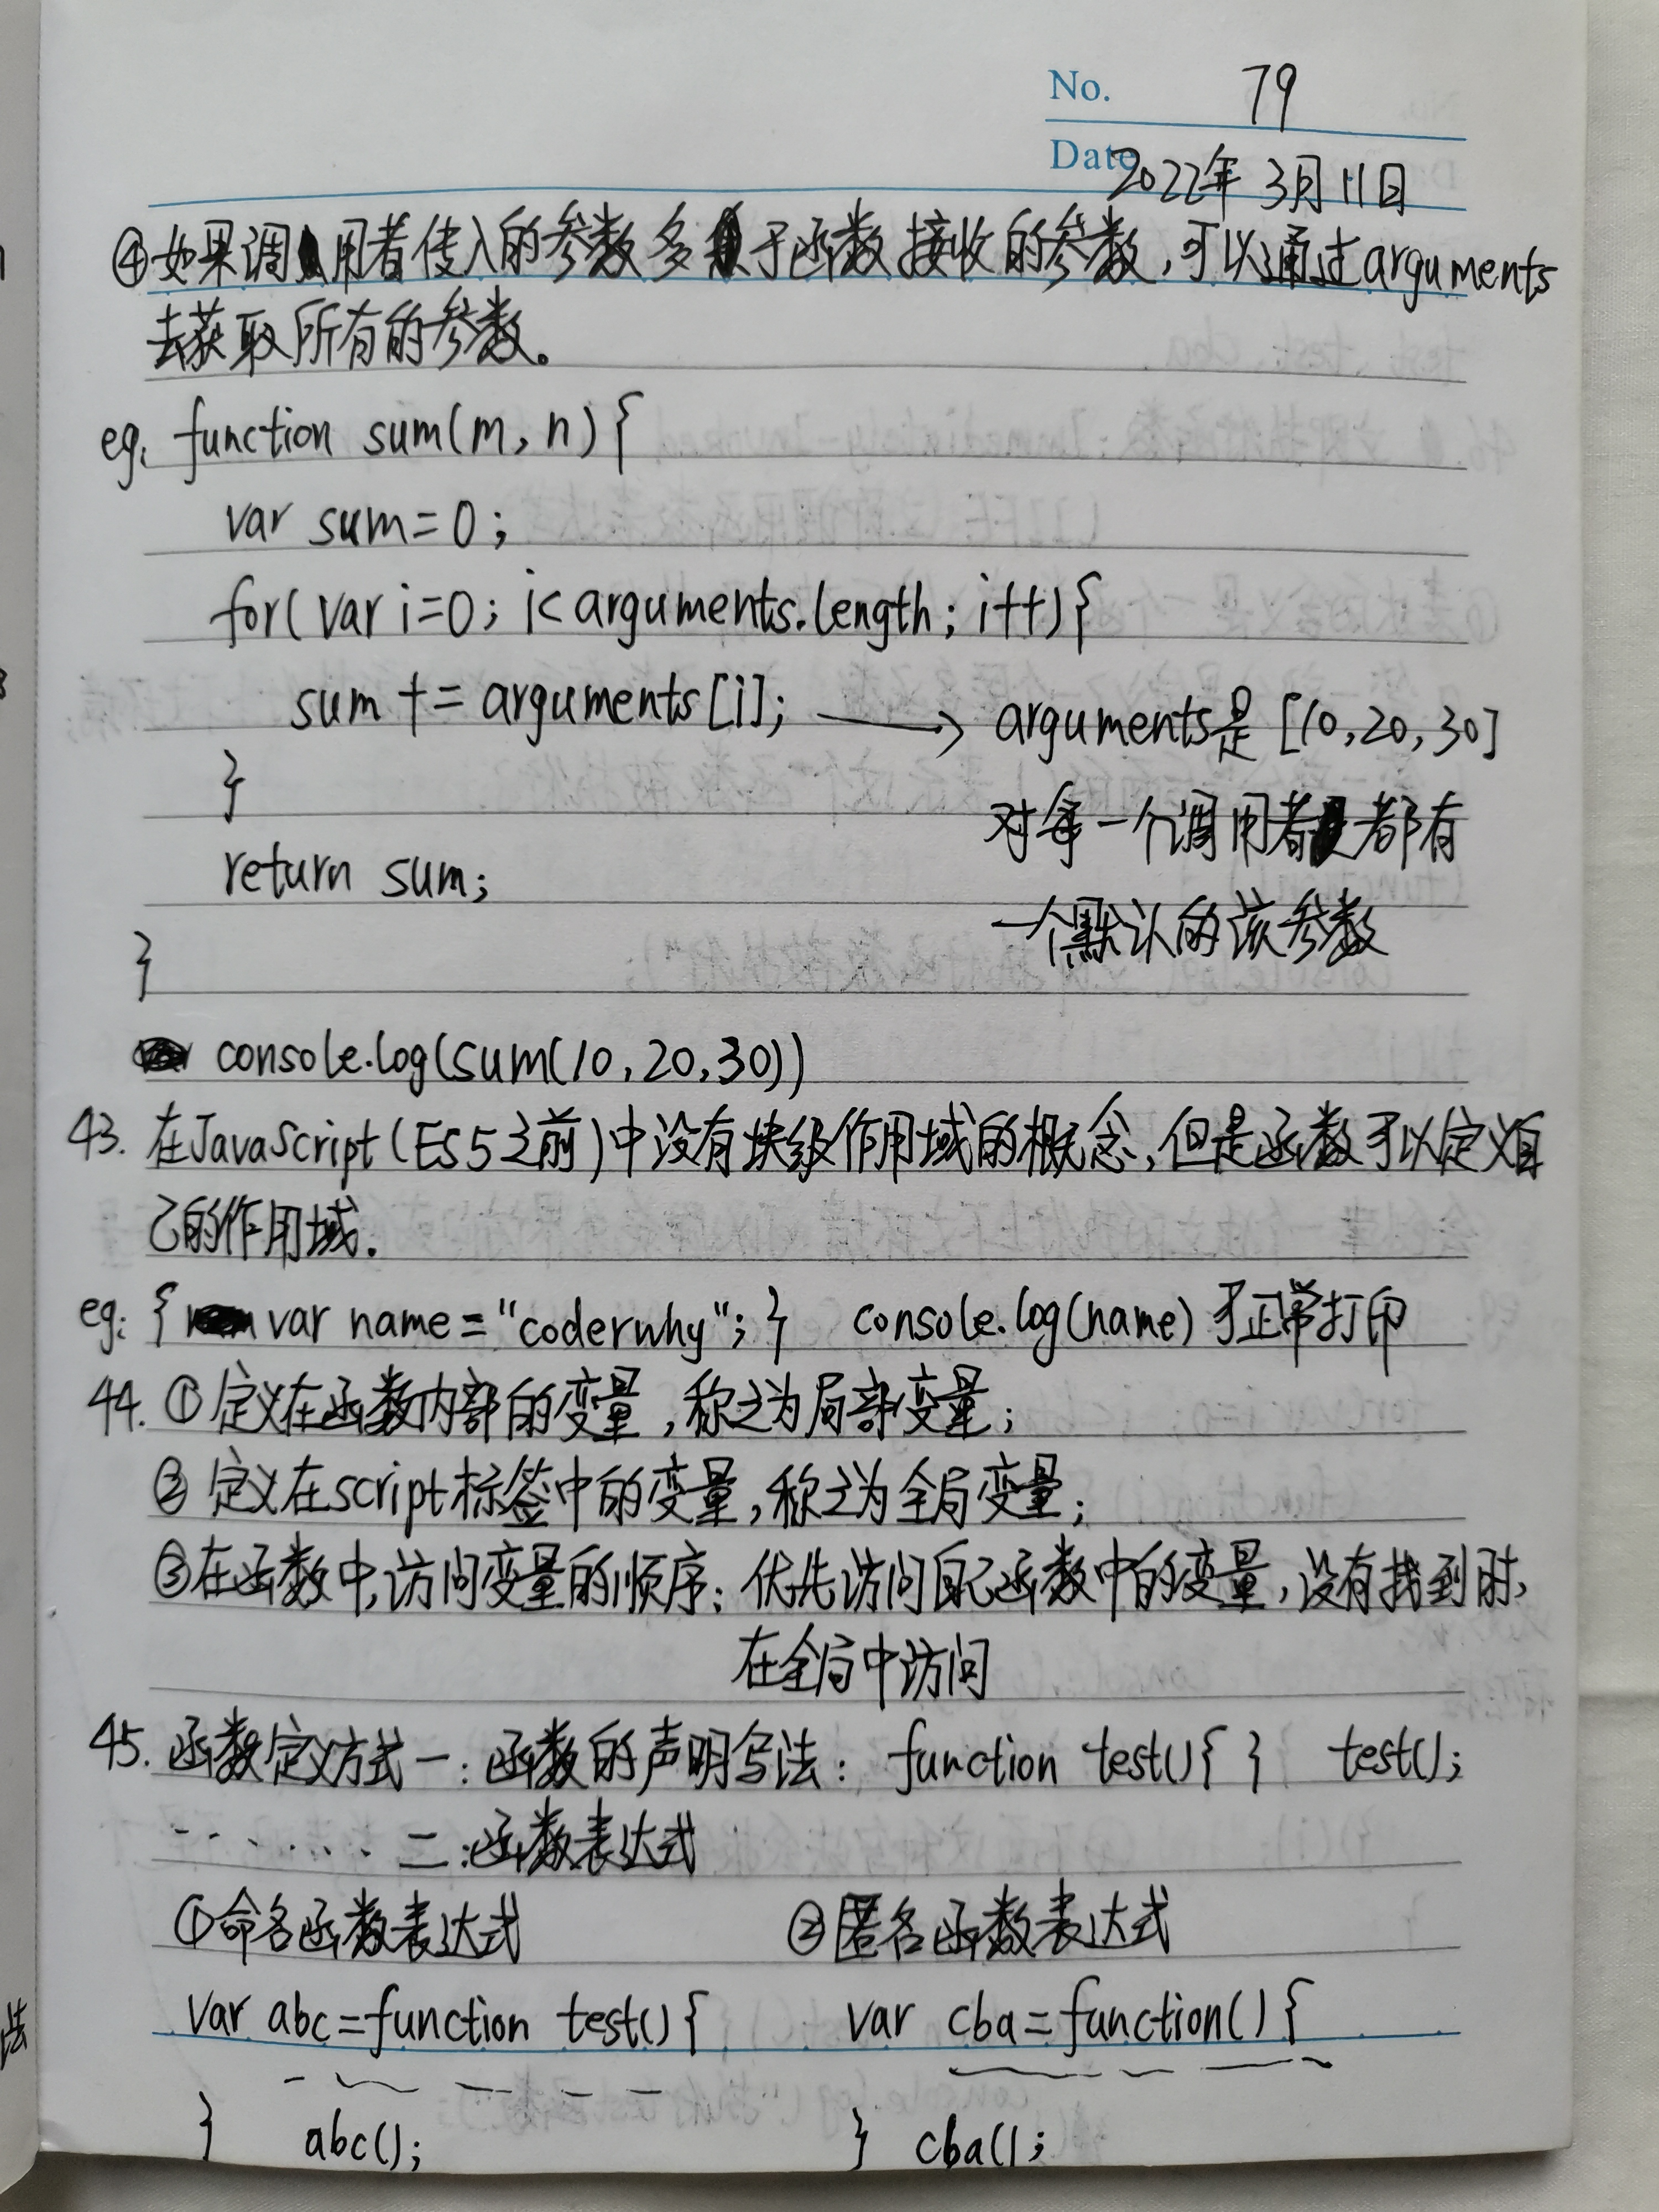 No. 79
Date 2022年3月11日
④如果调用者传入的参数多于函数接收的参数,可以通过arguments
去获取所有的参数。
eg: function sum(m, n) {
var sum=0;
for(var i=0; i<arguments.length; i++){
sum += arguments[i]; → arguments是[10,20,30]
}
对每一个调用者都有
return sum;
一个默认的该参数
}
console.log(sum(10,20,30))
43. 在JavaScript(ES5之前)中没有块级作用域的概念,但是函数可以定义自
己的作用域.
eg: { var name="coderwhy"; } console.log(name) 可正常打印
44. ①定义在函数内部的变量,称之为局部变量;
② 定义在script标签中的变量,称之为全局变量;
③在函数中,访问变量的顺序:优先访问自己函数中的变量,没有找到时,
在全局中访问
45. 函数定义方式一:函数的声明写法: function test(){ } test();
二:函数表达式
①命名函数表达式 ②匿名函数表达式
var abc=function test(){ var cba=function(){
} abc(); } cba();